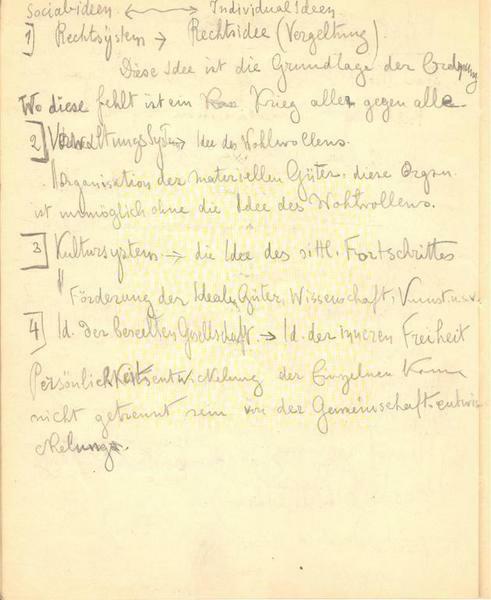 Socialideen ⟷ Individualideen
1] Rechtssystem → Rechtsidee (Vergeltung)
Diese Idee ist die Grundlage der Ordnung
Wo diese fehlt ist ein Krieg aller gegen alle
2] Verwaltungssystem → Idee des Wohlwollens.
Organisation der materiellen Güter, diese Organ.
ist unmöglich ohne die Idee des Wohlwollens.
3] Kultursystem → die Idee des sittl. Fortschrittes
Förderung der Idealen Güter, Wissenschaft, Kunst u.s.w.
4] Id. der beseelten Gesellschaft → Id. der inneren Freiheit
Persönlichkeitsentwickelung der Einzelnen kann
nicht getrennt sein von der Gemeinschaftsentwi-
ckelung.